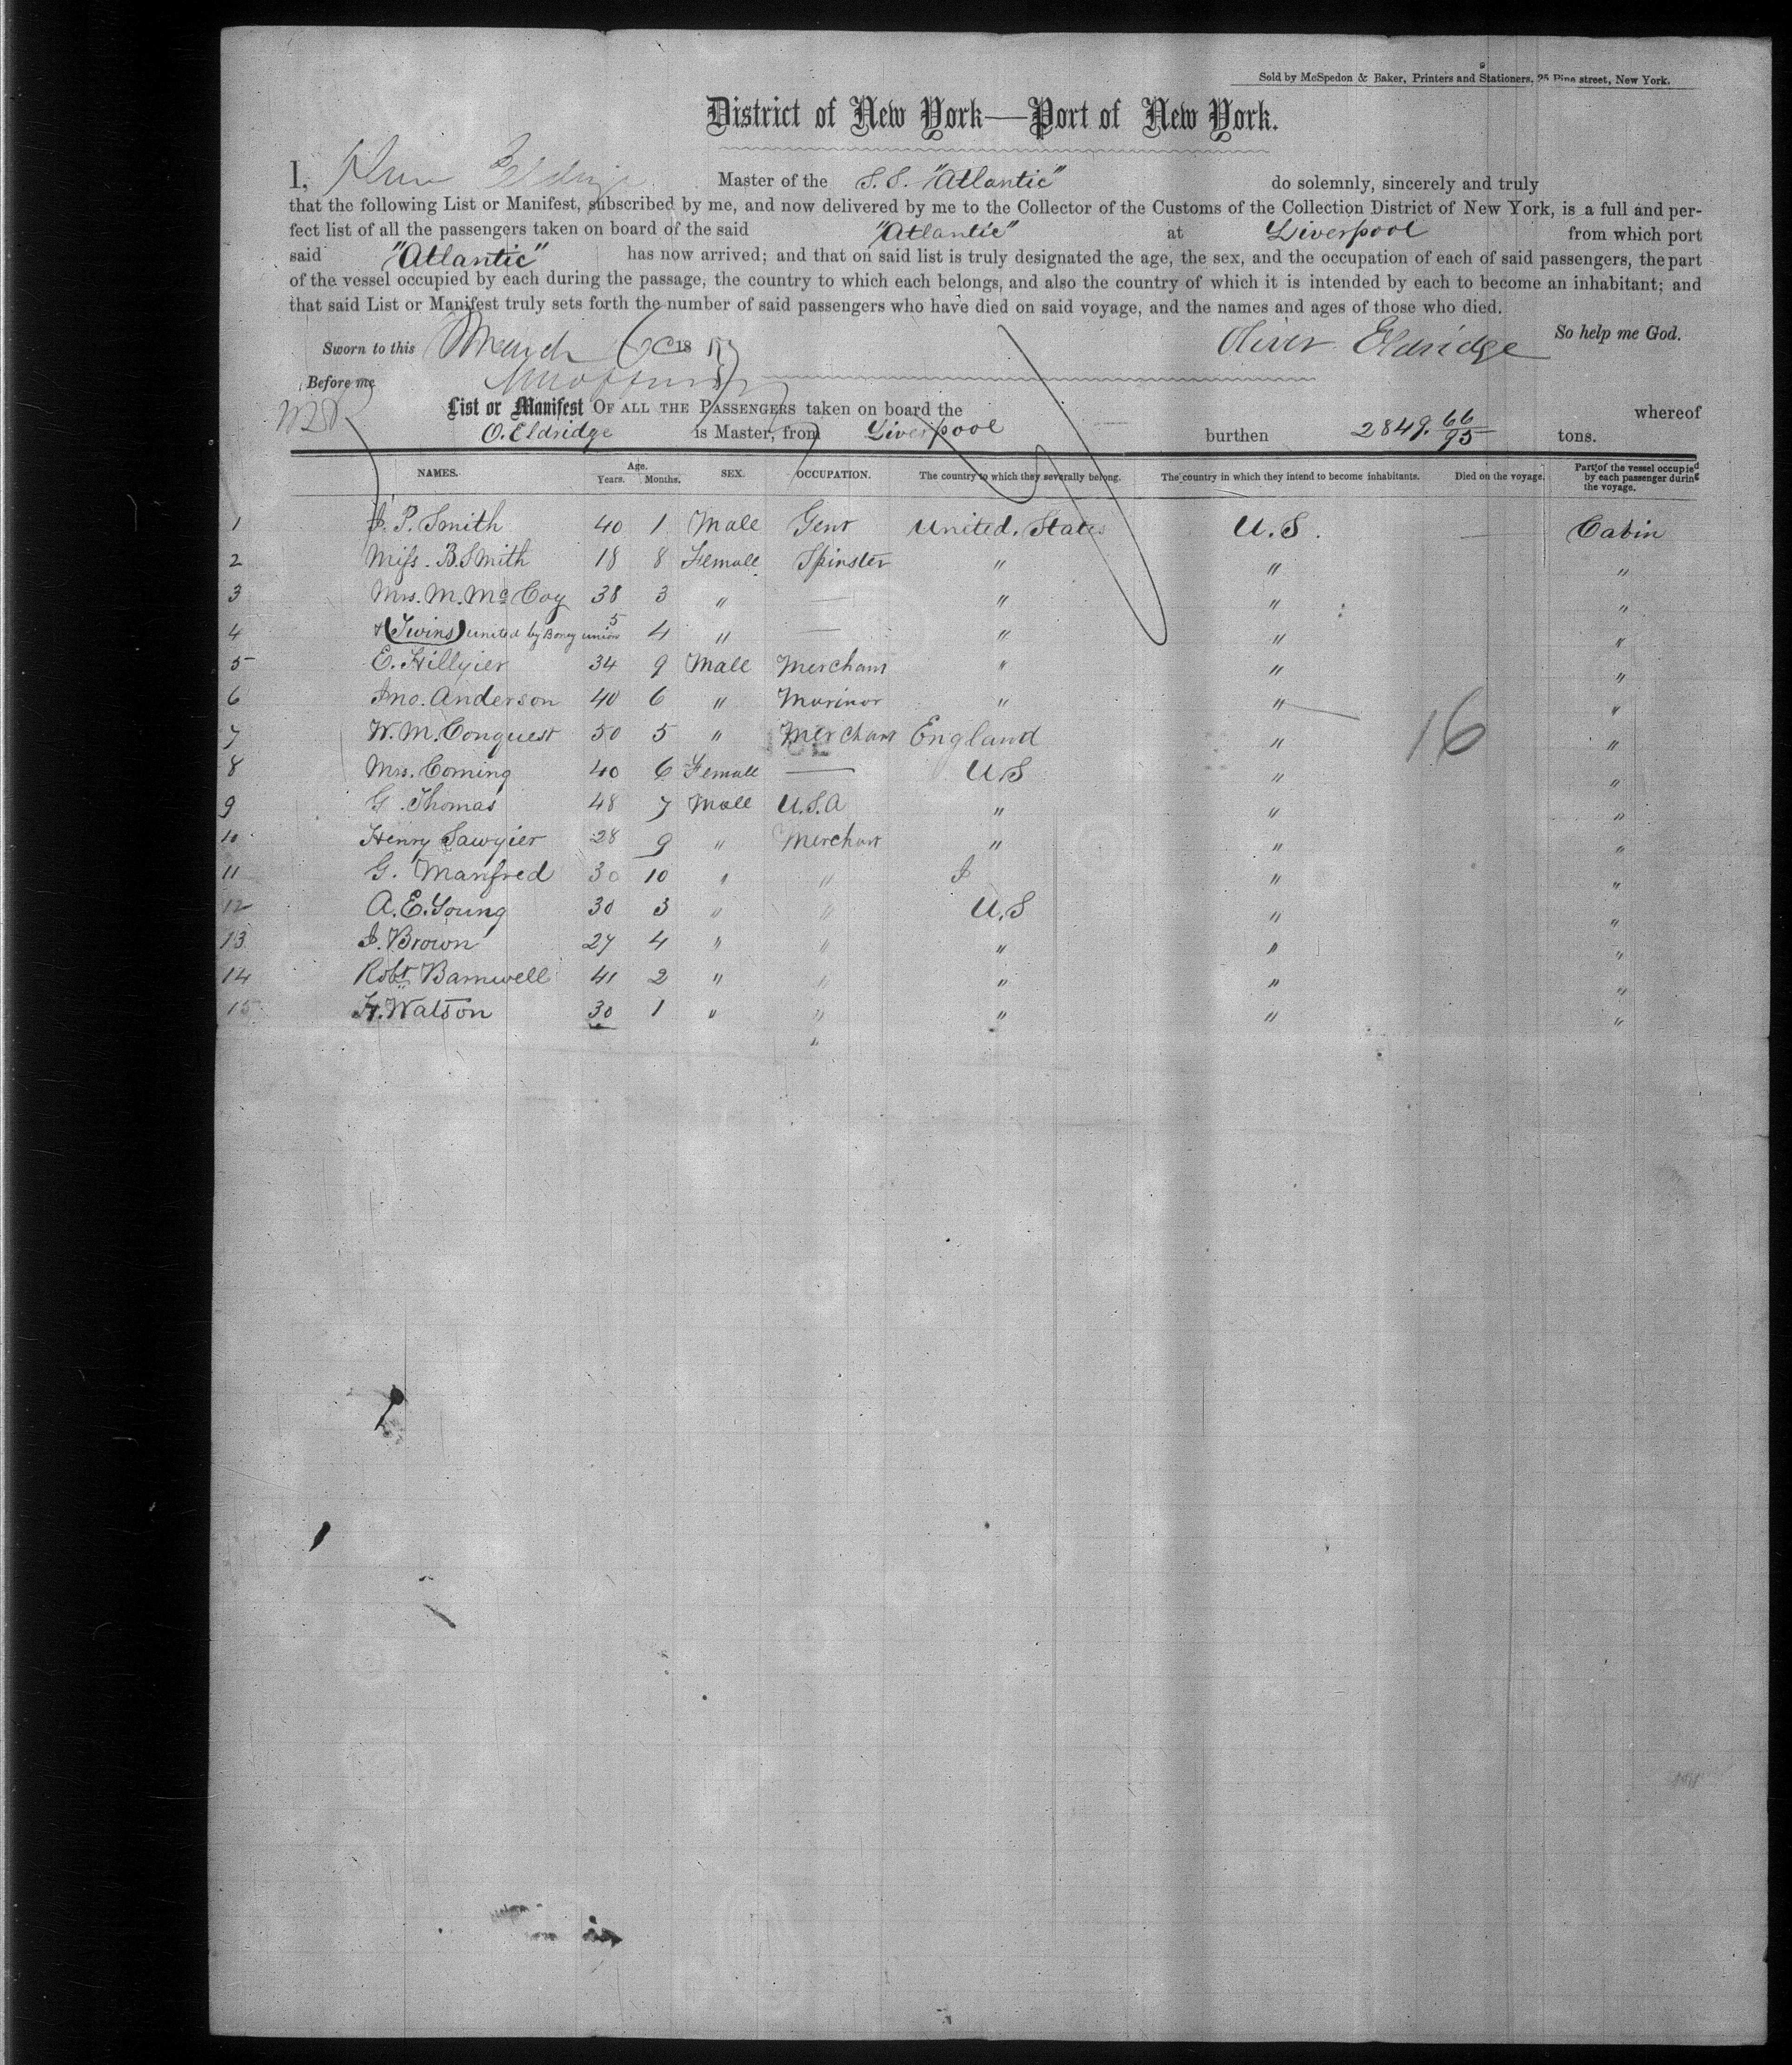 Sold by McSpedon & Baker, Printers and Stationers, 25 Pine street, New York.
District of New York—Port of New York.
I, Oliver Eldridge Master of the S.S. "Atlantic" do solemnly, sincerely and truly
that the following List or Manifest, subscribed by me, and now delivered by me to the Collector of the Customs of the Collection District of New York, is a full and per-
fect list of all the passengers taken on board of the said "Atlantic" at Liverpool from which port
said "Atlantic" has now arrived; and that on said list is truly designated the age, the sex, and the occupation of each of said passengers, the part
of the vessel occupied by each during the passage, the country to which each belongs, and also the country of which it is intended by each to become an inhabitant; and
that said List or Manifest truly sets forth the number of said passengers who have died on said voyage, and the names and ages of those who died.
So help me God.
Sworn to this March 18 Oliver Eldridge
Before me
List or Manifest OF ALL THE PASSENGERS taken on board the whereof
O. Eldridge is Master, from Liverpool burthen 2849. 66/95 tons.
NAMES. Age. Years. Months. SEX. OCCUPATION. The country to which they severally belong. The country in which they intend to become inhabitants. Died on the voyage. Part of the vessel occupied by each passenger during the voyage.
1 J. P. Smith 40 1 Male Gent United. States U.S. — Cabin
2 Miss. B. Smith 18 8 Female Spinster " " "
3 Mrs. M. McCoy 38 3 " — " " "
4 +(Twins) united by Boney union 5 4 " — " " "
5 E. Hillyier 34 9 Male Merchant " " "
6 Jno. Anderson 40 6 " Marinor " " "
7 W. M. Conquest 50 5 " Merchant England " "
8 Mrs. Coming 40 6 Female — U.S " "
9 G. Thomas 48 7 Male U.S.A " " "
10 Henry Sawyier 28 9 " Merchant " " "
11 G. Manfred 30 10 " " " "
12 A. E. Young 30 3 " " U.S " "
13 J. Brown 27 4 " " " " "
14 Robt. Barnwell 41 2 " " " " "
15 H. Watson 30 1 " " " " "
"
16